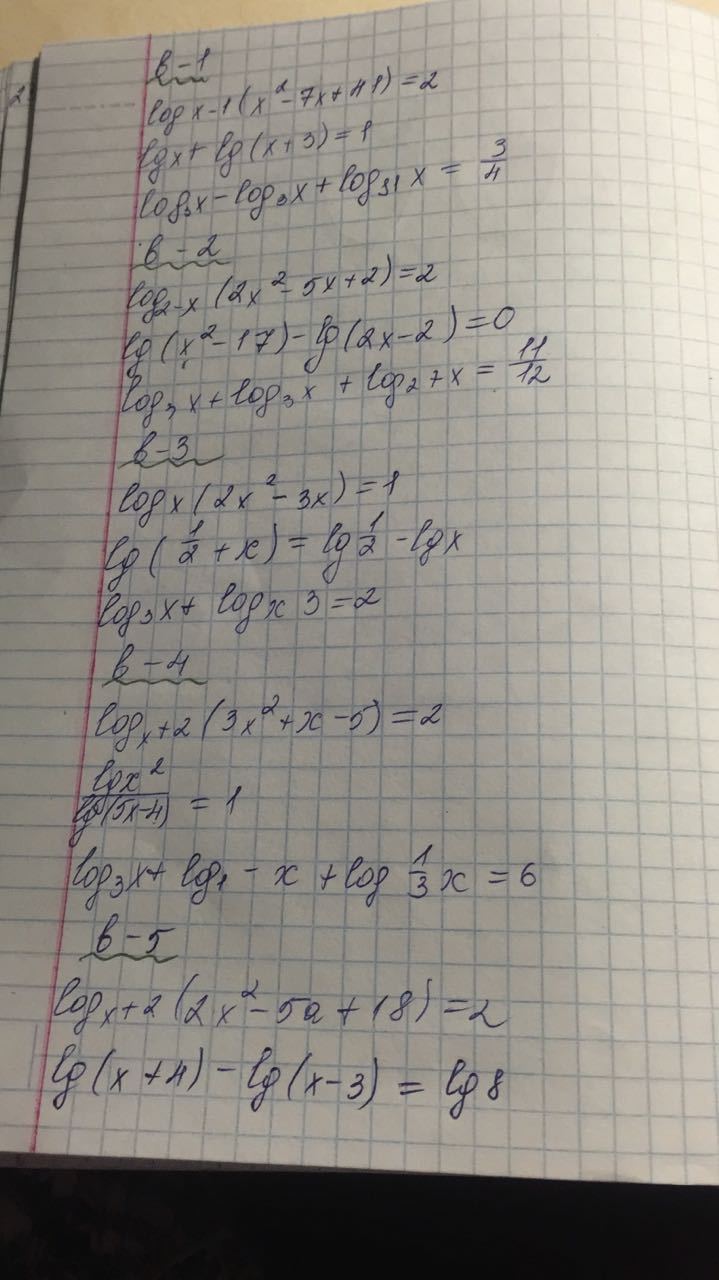 2
в-1
log x-1 (x²-7x+41)=2
lgx+lg(x+3)=1
log₃x-log₉x+log₈₁x=3/4
в-2
log₂₋ₓ(2x²-5x+2)=2
lg(x²-17)-lg(2x-2)=0
log₃x+log₃x+log₂7x=11/12
в-3
log x(2x²-3x)=1
lg(1/2+x)=lg1/2-lgx
log₃x+logx3=2
в-4
logₓ+2(3x²+x-5)=2
lgx²/lg(5x-4)=1
log₃x+log₁-x+log1/3x=6
в-5
logₓ+2(2x²-5a+18)=2
lg(x+4)-lg(x-3)=lg8